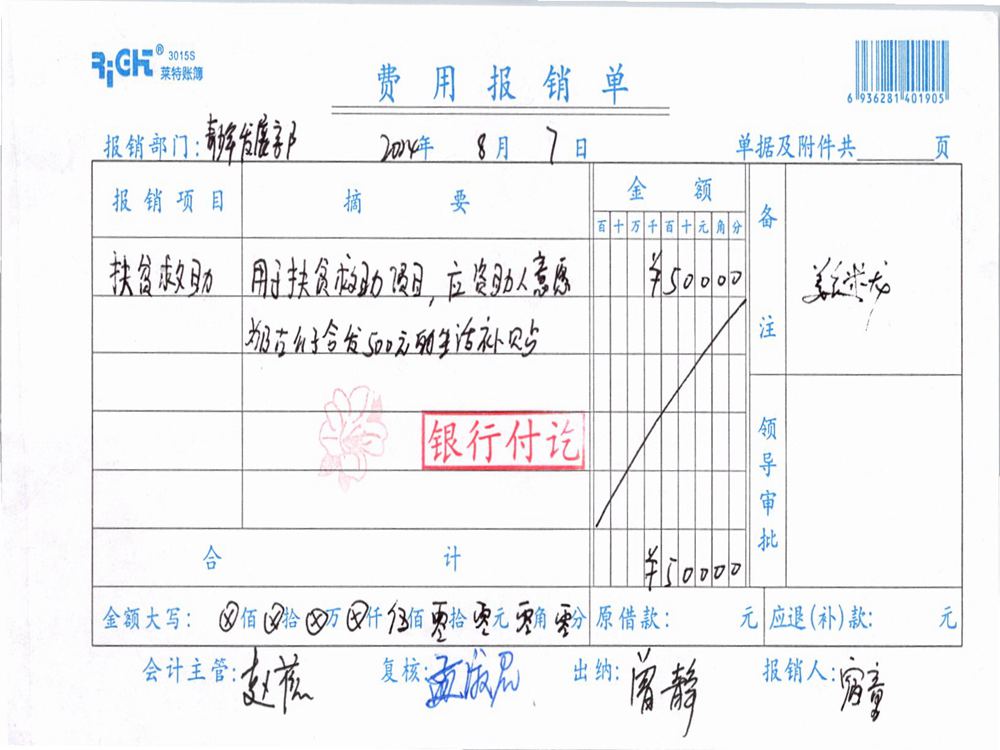 RiGHT® 3015S
莱特账簿
费用报销单
6 936281 401905
报销部门: 2024年 8月 7日 单据及附件共 页
报销项目 摘要 金额 备注
百十万千百十元角分
扶贫救助 用于扶贫救助项目,应资助人意愿 ¥50000
发500元的生活补贴
银行付讫
领导审批
合计 ¥50000
金额大写: ⊗佰⊗拾⊗万⊗仟伍佰零拾零元零角零分 原借款: 元 应退(补)款: 元
会计主管: 赵 复核: 孟 出纳: 曾静 报销人: 童